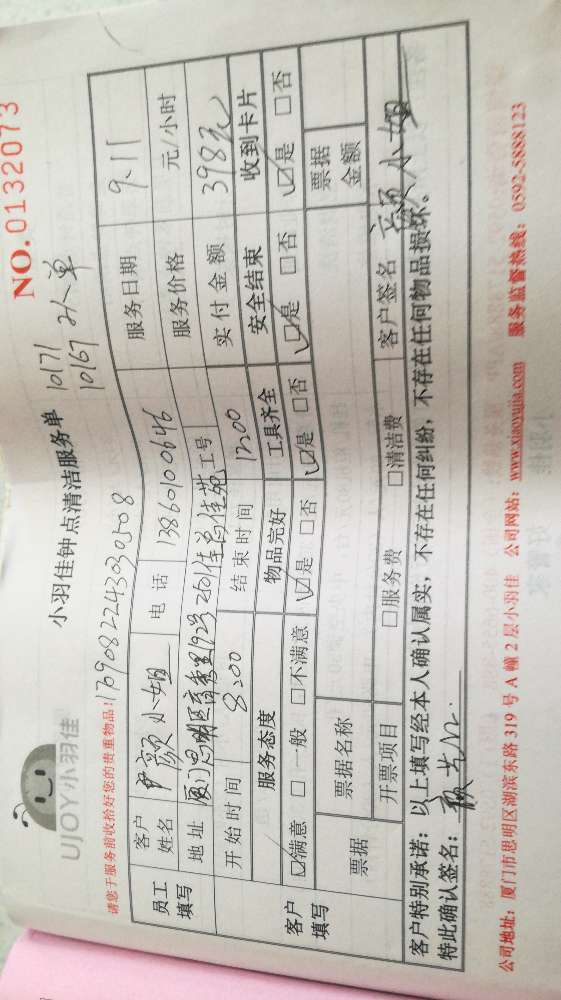 UJOY小羽佳
小羽佳钟点清洁服务单
10171
10167 2人单
NO.0132073
请您于服务前收拾好您的贵重物品!
17090822430301508
员工填写
客户姓名 颜小姐 电话 13860100646 服务日期 9.11
地址 厦门思明区 192号 2601佳尚佳苑 工号 服务价格 元/小时
开始时间 8:00 结束时间 12:00 实付金额 398元
客户填写
服务态度 物品完好 工具齐全 安全结束 收到卡片
☑满意 □一般 □不满意 ☑是 □否 ☑是 □否 ☑是 □否 ☑是 □否
票据 票据名称 票据金额
开票项目 □服务费 □清洁费 客户签名 颜小姐
客户特别承诺：以上填写经本人确认属实，不存在任何纠纷，不存在任何物品损坏。
特此确认签名：
公司地址：厦门市思明区湖滨东路 319 号 A 幢 2 层小羽佳 公司网站：www.xiaoyujia.com 服务监督热线：0592-5888123